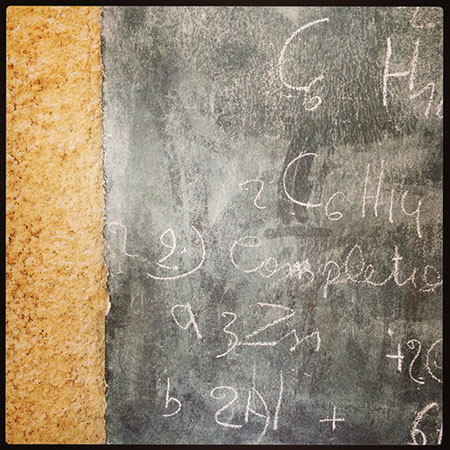 C₆ H
2 C₆ H14
2 2) Completi
a 3Zn + 2
b 2Al + 6